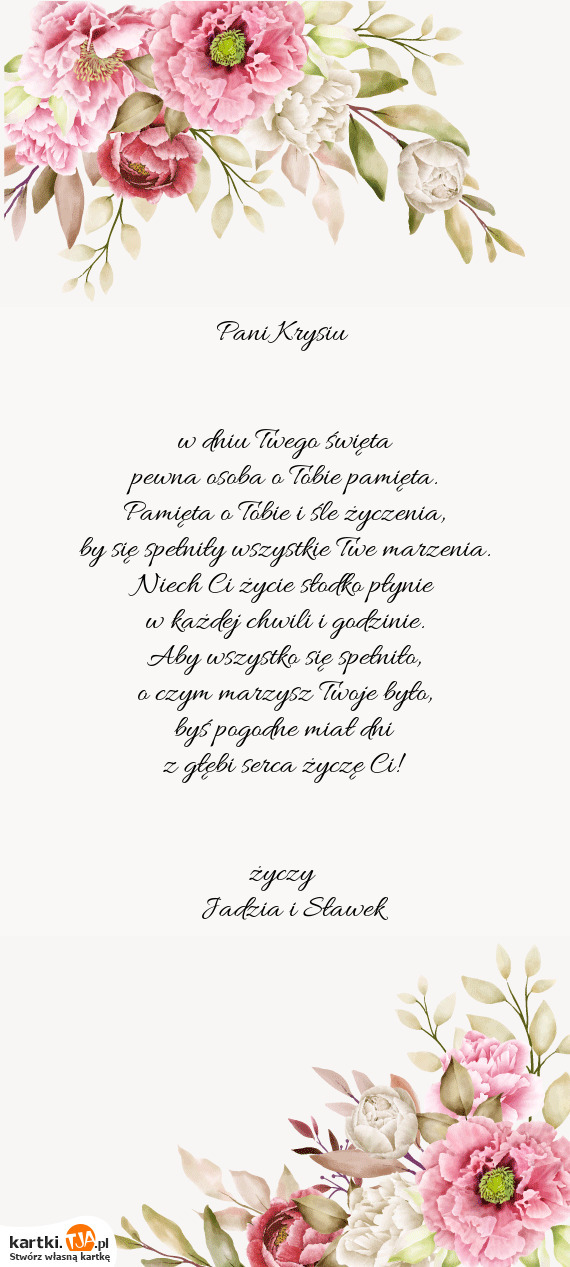 Pani Krysiu
w dniu Twego święta
pewna osoba o Tobie pamięta.
Pamięta o Tobie i śle życzenia,
by się spełniły wszystkie Twe marzenia.
Niech Ci życie słodko płynie
w każdej chwili i godzinie.
Aby wszystko się spełniło,
o czym marzysz Twoje było,
byś pogodne miał dni
z głębi serca życzę Ci!
życzy
Jadzia i Sławek
kartki.TJA.pl
Stwórz własną kartkę